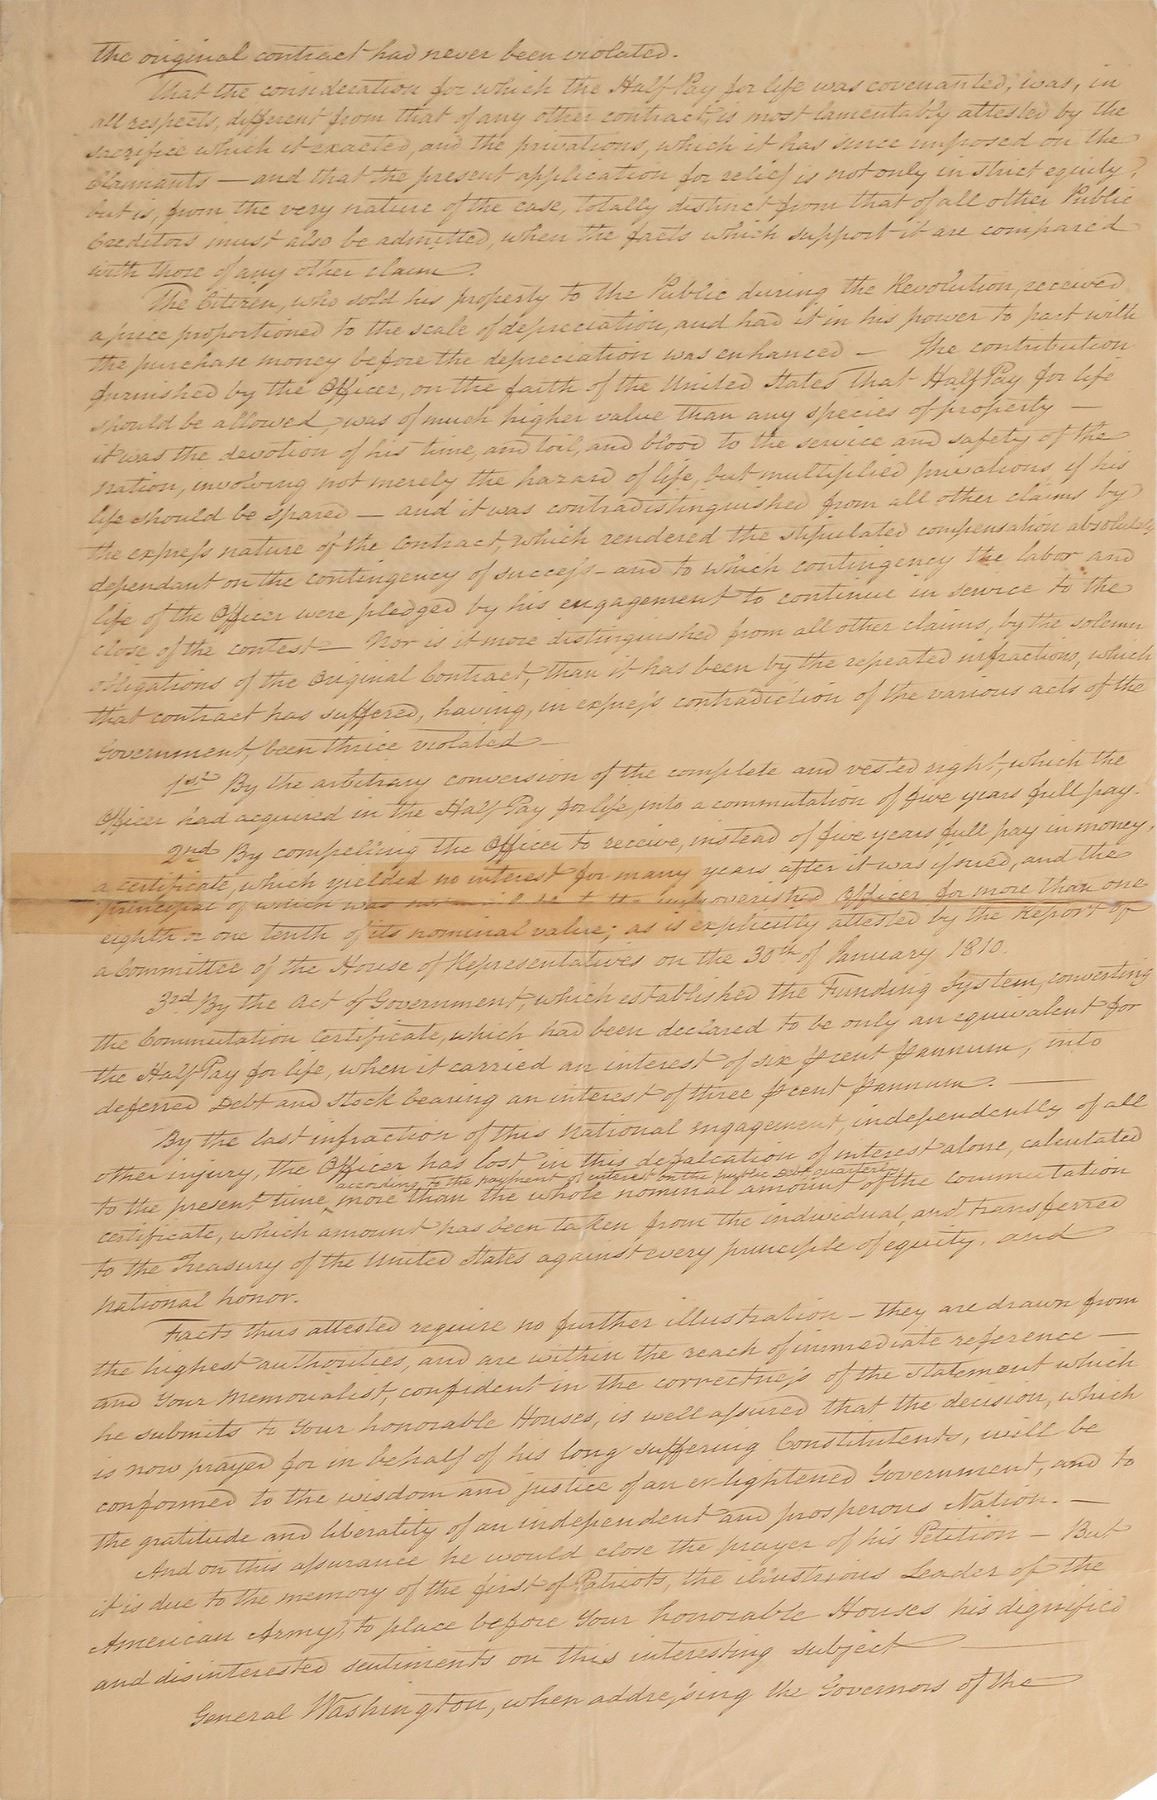 the original contract had never been violated.
That the consideration for which the Half Pay for life was covenanted, was, in
all respects, different from that of any other contract, is most lamentably attested by the
sacrifice which it exacted, and the privations, which it has since imposed on the
Claimants — and that the present application for relief is not only in strict equity,
but is, from the very nature of the case, totally distinct from that of all other Public
Creditors must also be admitted, when the facts which support it are compared
with those of any other claim.
The Citizen, who sold his property to the Public during the Revolution, received
a price proportioned to the scale of depreciation, and had it in his power to part with
the purchase money before the depreciation was enhanced — The contribution
furnished by the Officer, on the faith of the United States that Half Pay for life
should be allowed, was of much higher value than any species of property —
it was the devotion of his time, and toil, and blood to the service and safety of the
nation, involving not merely the hazard of life, but multiplied privations, if his
life should be spared — and it was contradistinguished from all other claims by
the express nature of the Contract, which rendered the stipulated compensation absolutely
dependant on the contingency of success — and to which contingency the labor and
life of the Officer were pledged by his engagement to continue in service to the
close of the contest — Nor is it more distinguished from all other claims, by the solemn
obligations of the Original Contract, than it has been by the repeated infractions, which
that contract has suffered, having, in express contradiction of the various acts of the
Government, been thrice violated —
1st By the arbitrary conversion of the complete and vested right, which the
Officer had acquired in the Half Pay for life, into a commutation of five years full pay.
2nd By compelling the Officer to receive, instead of five years full pay in money,
a certificate, which yielded no interest for many years after it was issued, and the
principal of which was to the impoverished Officer for more than one
eighth or one tenth of its nominal value; as is explicitly attested by the Report of
a Committee of the House of Representatives on the 30th of January 1810.
3rd By the Act of Government, which established the Funding System, converting
the Commutation Certificate, which had been declared to be only an equivalent for
the Half Pay for life, when it carried an interest of six ⅌ cent ⅌ annum, into
deferred Debt and Stock bearing an interest of three ⅌ cent ⅌ annum. —
By the last infraction of this National engagement, independently of all
other injury, the Officer has lost in this defalcation of interest alone, calculated
according to the payment of interest on the public Debt quarterly
to the present time, more than the whole nominal amount of the commutation
certificate, which amount has been taken from the individual, and transferred
to the Treasury of the United States against every principle of equity, and
national honor.
Facts thus attested require no further illustration — they are drawn from
the highest authorities, and are within the reach of immediate reference —
and Your Memorialist, confident in the correctness of the Statement which
he submits to Your honorable Houses, is well assured that the decision, which
is now prayed for in behalf of his long suffering Constituents, will be
conformed to the wisdom and justice of an enlightened Government, and to
the gratitude and liberality of an independent and prosperous Nation. —
And on this assurance he would close the prayer of his Petition — But
it is due to the memory of the first of Patriots, the illustrious Leader of the
American Army, to place before Your honorable Houses his dignified
and disinterested sentiments on this interesting subject —
General Washington, when addressing the Governors of the